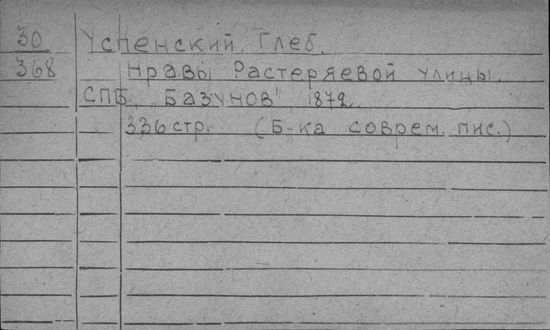 30 Успенский. Глеб.
368 Нравы Растеряевой улицы.
СПБ, "Базунов" 1872.
336 стр. (Б-ка соврем. пис.)